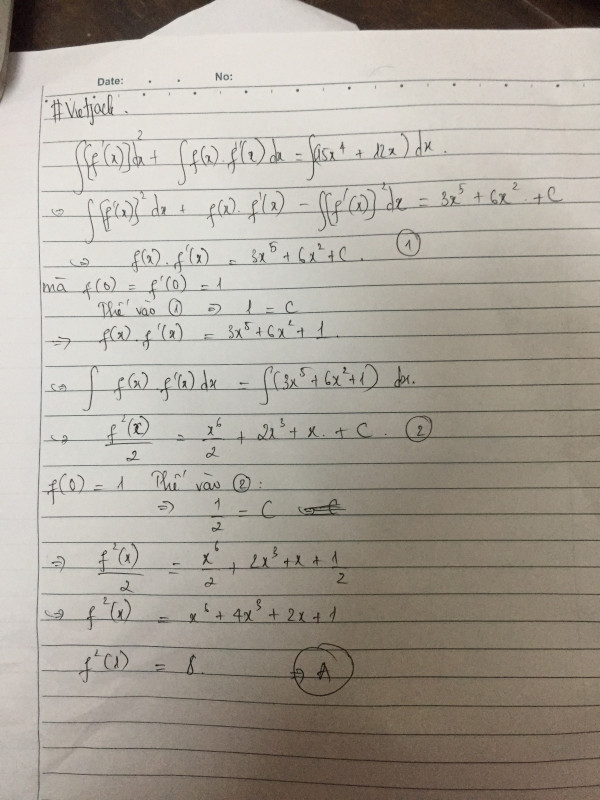 Date: No:
#Vietjack.
∫[f'(x)]²dx + ∫f(x).f'(x)dx = ∫(15x⁴ + 12x)dx.
⇔ ∫[f'(x)]²dx + f(x).f'(x) - ∫[f'(x)]²dx = 3x⁵ + 6x² + C
⇔ f(x).f'(x) = 3x⁵ + 6x² + C. ①
mà f(0) = f'(0) = 1
Thế vào ① ⇒ 1 = C
⇒ f(x).f'(x) = 3x⁵ + 6x² + 1.
⇔ ∫ f(x).f'(x)dx = ∫(3x⁵ + 6x² + 1) dx.
⇔ f²(x)/2 = x⁶/2 + 2x³ + x + C. ②
f(0) = 1 Thế vào ②:
⇒ 1/2 = C
⇒ f²(x)/2 = x⁶/2 + 2x³ + x + 1/2
⇔ f²(x) = x⁶ + 4x³ + 2x + 1
f²(1) = 8. ⇒ A